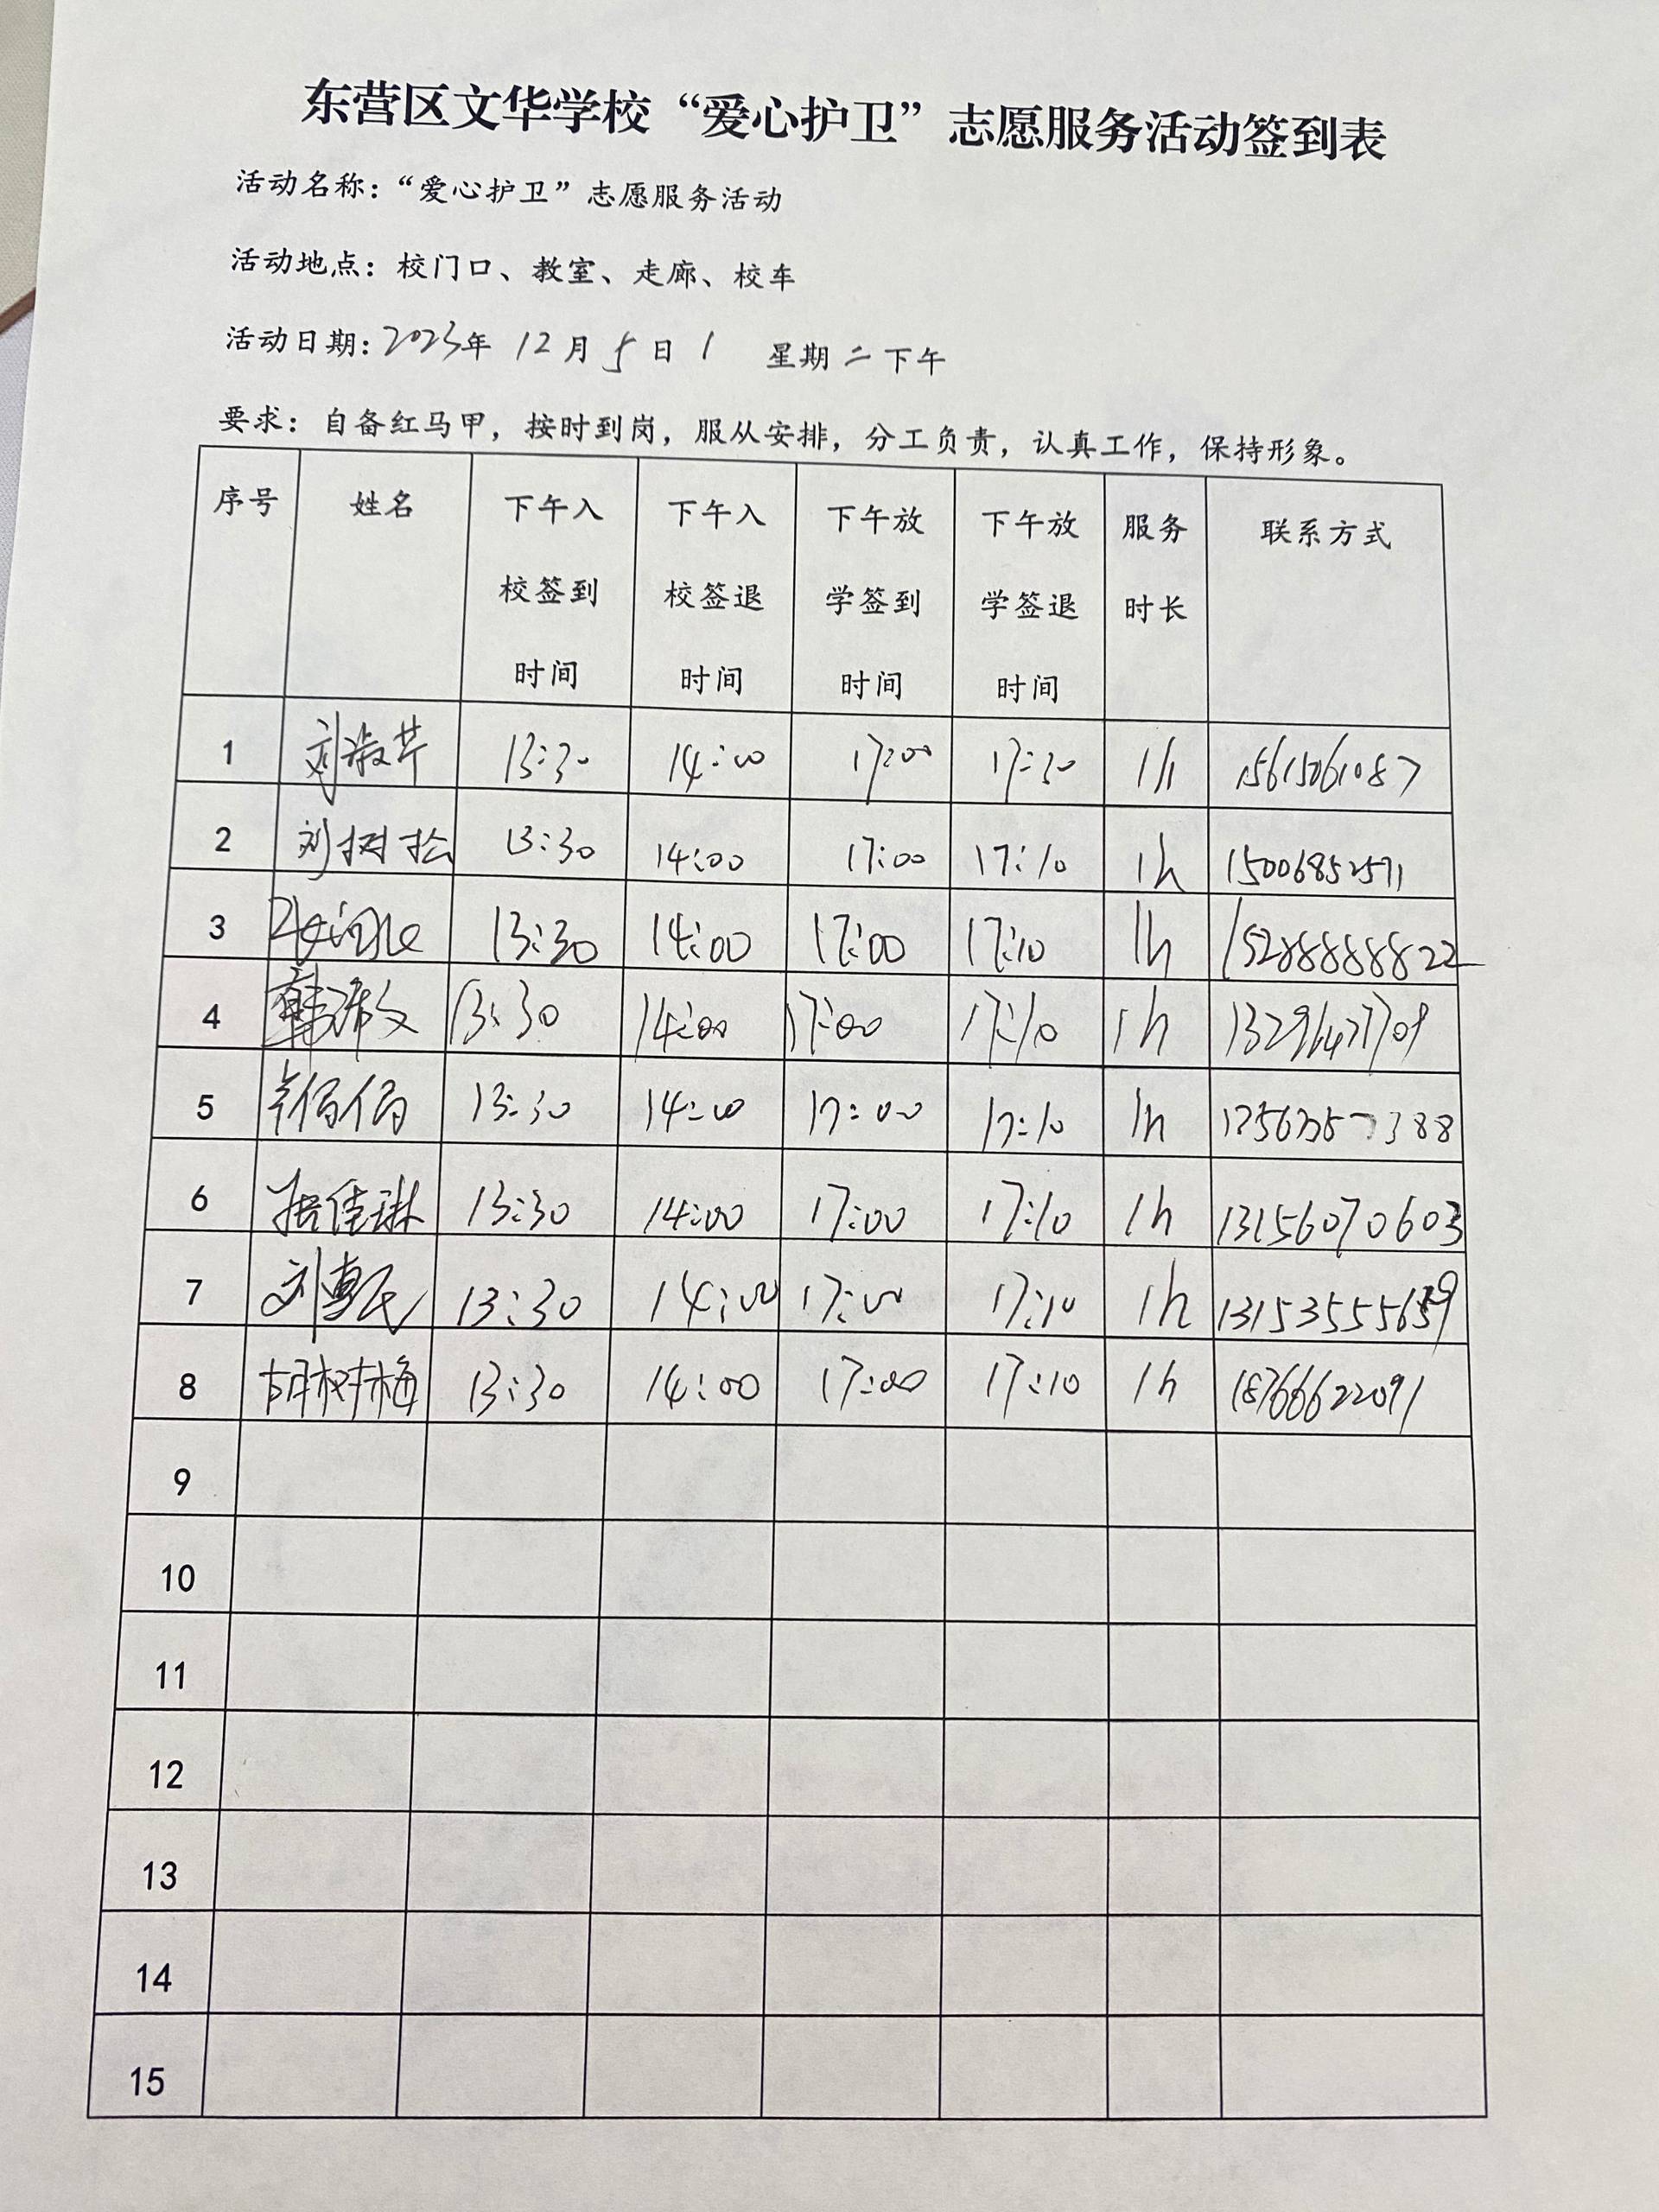 东营区文华学校“爱心护卫”志愿服务活动签到表
活动名称：“爱心护卫”志愿服务活动
活动地点：校门口、教室、走廊、校车
活动日期：2023年 12月 5日 星期二下午
要求：自备红马甲，按时到岗，服从安排，分工负责，认真工作，保持形象。
序号 姓名 下午入校签到时间 下午入校签退时间 下午放学签到时间 下午放学签退时间 服务时长 联系方式
1 刘淑芹 13:30 14:00 17:00 17:30 1h 15615061087
2 刘树松 13:30 14:00 17:00 17:10 1h 15006852571
3 13:30 14:00 17:00 17:10 1h 15288888822
4 13:30 14:00 17:00 17:10 1h
5 13:30 14:00 17:00 17:10 1h
6 13:30 14:00 17:00 17:10 1h 13156070603
7 13:30 14:00 17:00 17:10 1h
8 胡树梅 13:30 14:00 17:00 17:10 1h 18766622091
9
10
11
12
13
14
15